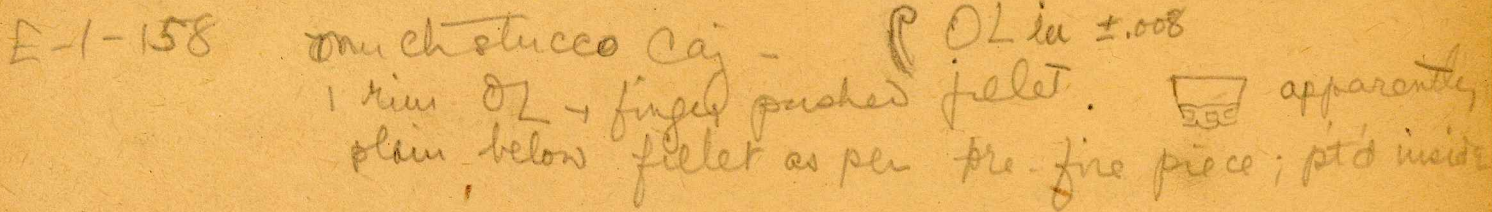 E-1-158 much stucco Caj - OL in ±.008
1 rim OL + finger pushed fillet. apparently
plain below fillet as per pre-fire piece; pt'd inside